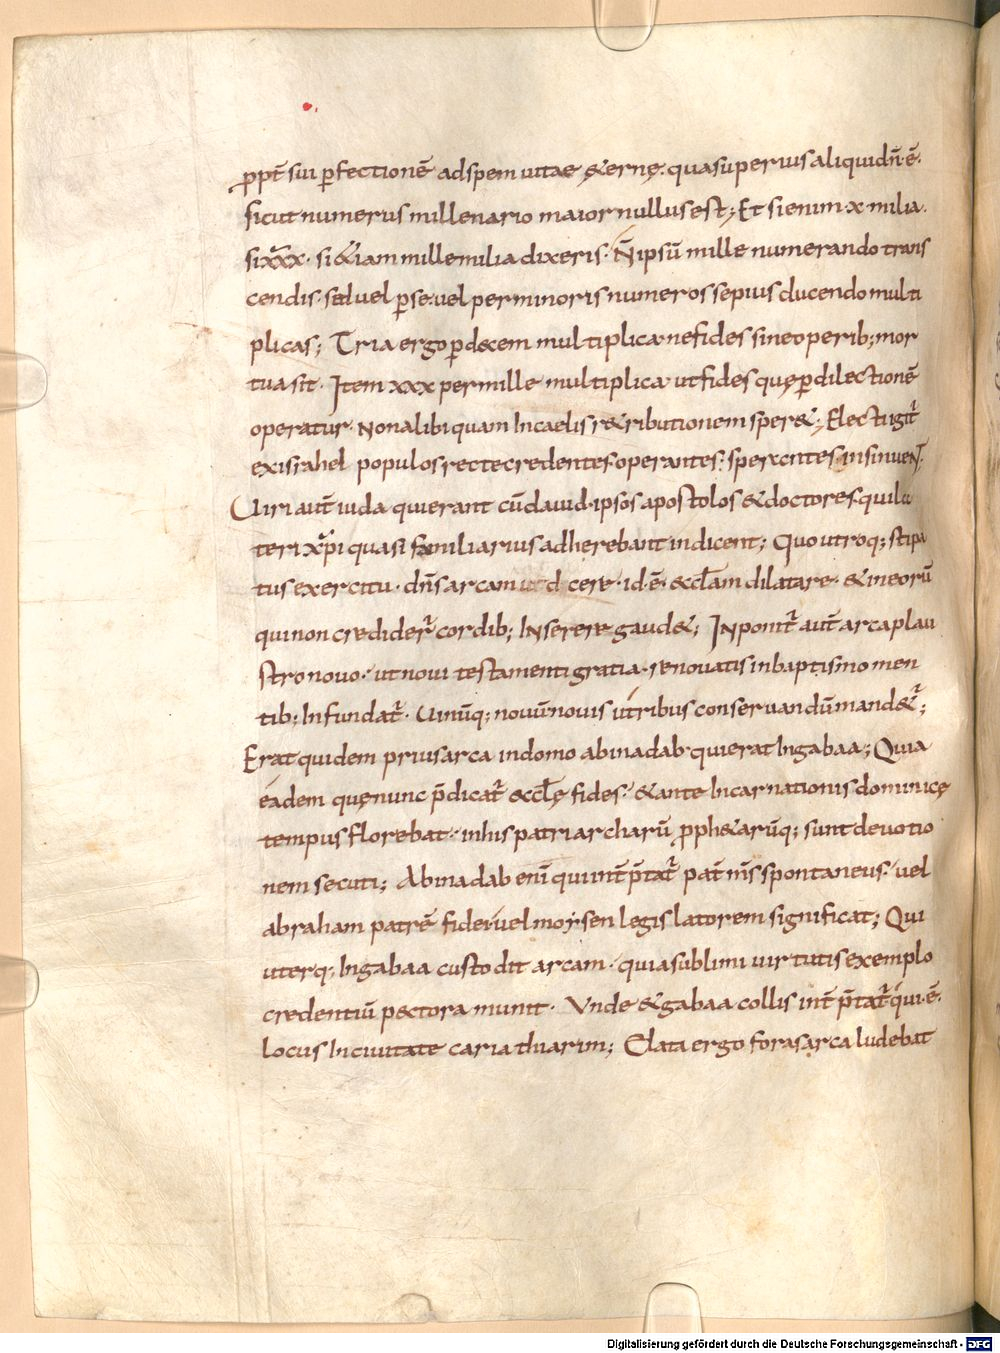 ꝓpt̄ sui ꝑfectionē ad spem uitae &ernę. qua superius aliquid n̄ ē.
sicut numerus millenario maior nullus est; Et si enim x milia.
si xxx. si &iam mille milia dixeris. N̄ ipsū mille numerando trans
cendis. sed uel ꝑ se. uel per minoris numeros sepius ducendo multi
plicas; Tria ergo ꝑ decem multiplica. ne fides sine operib; mor
tua sit. Item xxx per mille multiplica. ut fides quę ꝑ dilectionē
operatur. Non alibi quam In caelis r&ributionem sper&; Electi igit̄
ex israhel populos recte credentes. operantes. sperantes. insinuent.
Uiri aut̄ iuda qui erant cū dauid. ipsos apostolos & doctores. qui la
teri xp̄i quasi familiarius adherebant indicent; Quo utroq; stipa
tus exercitu. dn̄s arcam cere. id. ē. eccl̄am dilatare. & in eorū
qui non credider̄ cordib; Inserere gaud&; Inponit̄ aut̄ arca plau
stro nouo. ut noui testamenti gratia. renouatis in baptismo men
tib; Infundat̄. Uinūq; nouū nouis utribus conseruandū mand&̄;
Erat quidem prius arca in domo abinadab qui erat In gabaa; Quia
eadem quę nunc p̄dicat̄ eccl̄ę fides. & ante Incarnationis dominicę
tempus florebat. in his patriarcharū ꝓph&arūq; sunt deuotio
nem secuti; Abinadab enī qui int̄p̄tat̄ pat̄ m̄s spontaneus. uel
abraham patrē fidei. uel moysen legislatorem significat; Qui
uterq; In gabaa custodit arcam. quia sublimi uirtutis exemplo
credentiū pectora munit. Vnde & gabaa collis int̄p̄tat̄. qui. ē.
locus In ciuitate cariathiarim; Elata ergo foras arca ludebat
Digitalisierung gefördert durch die Deutsche Forschungsgemeinschaft - DFG